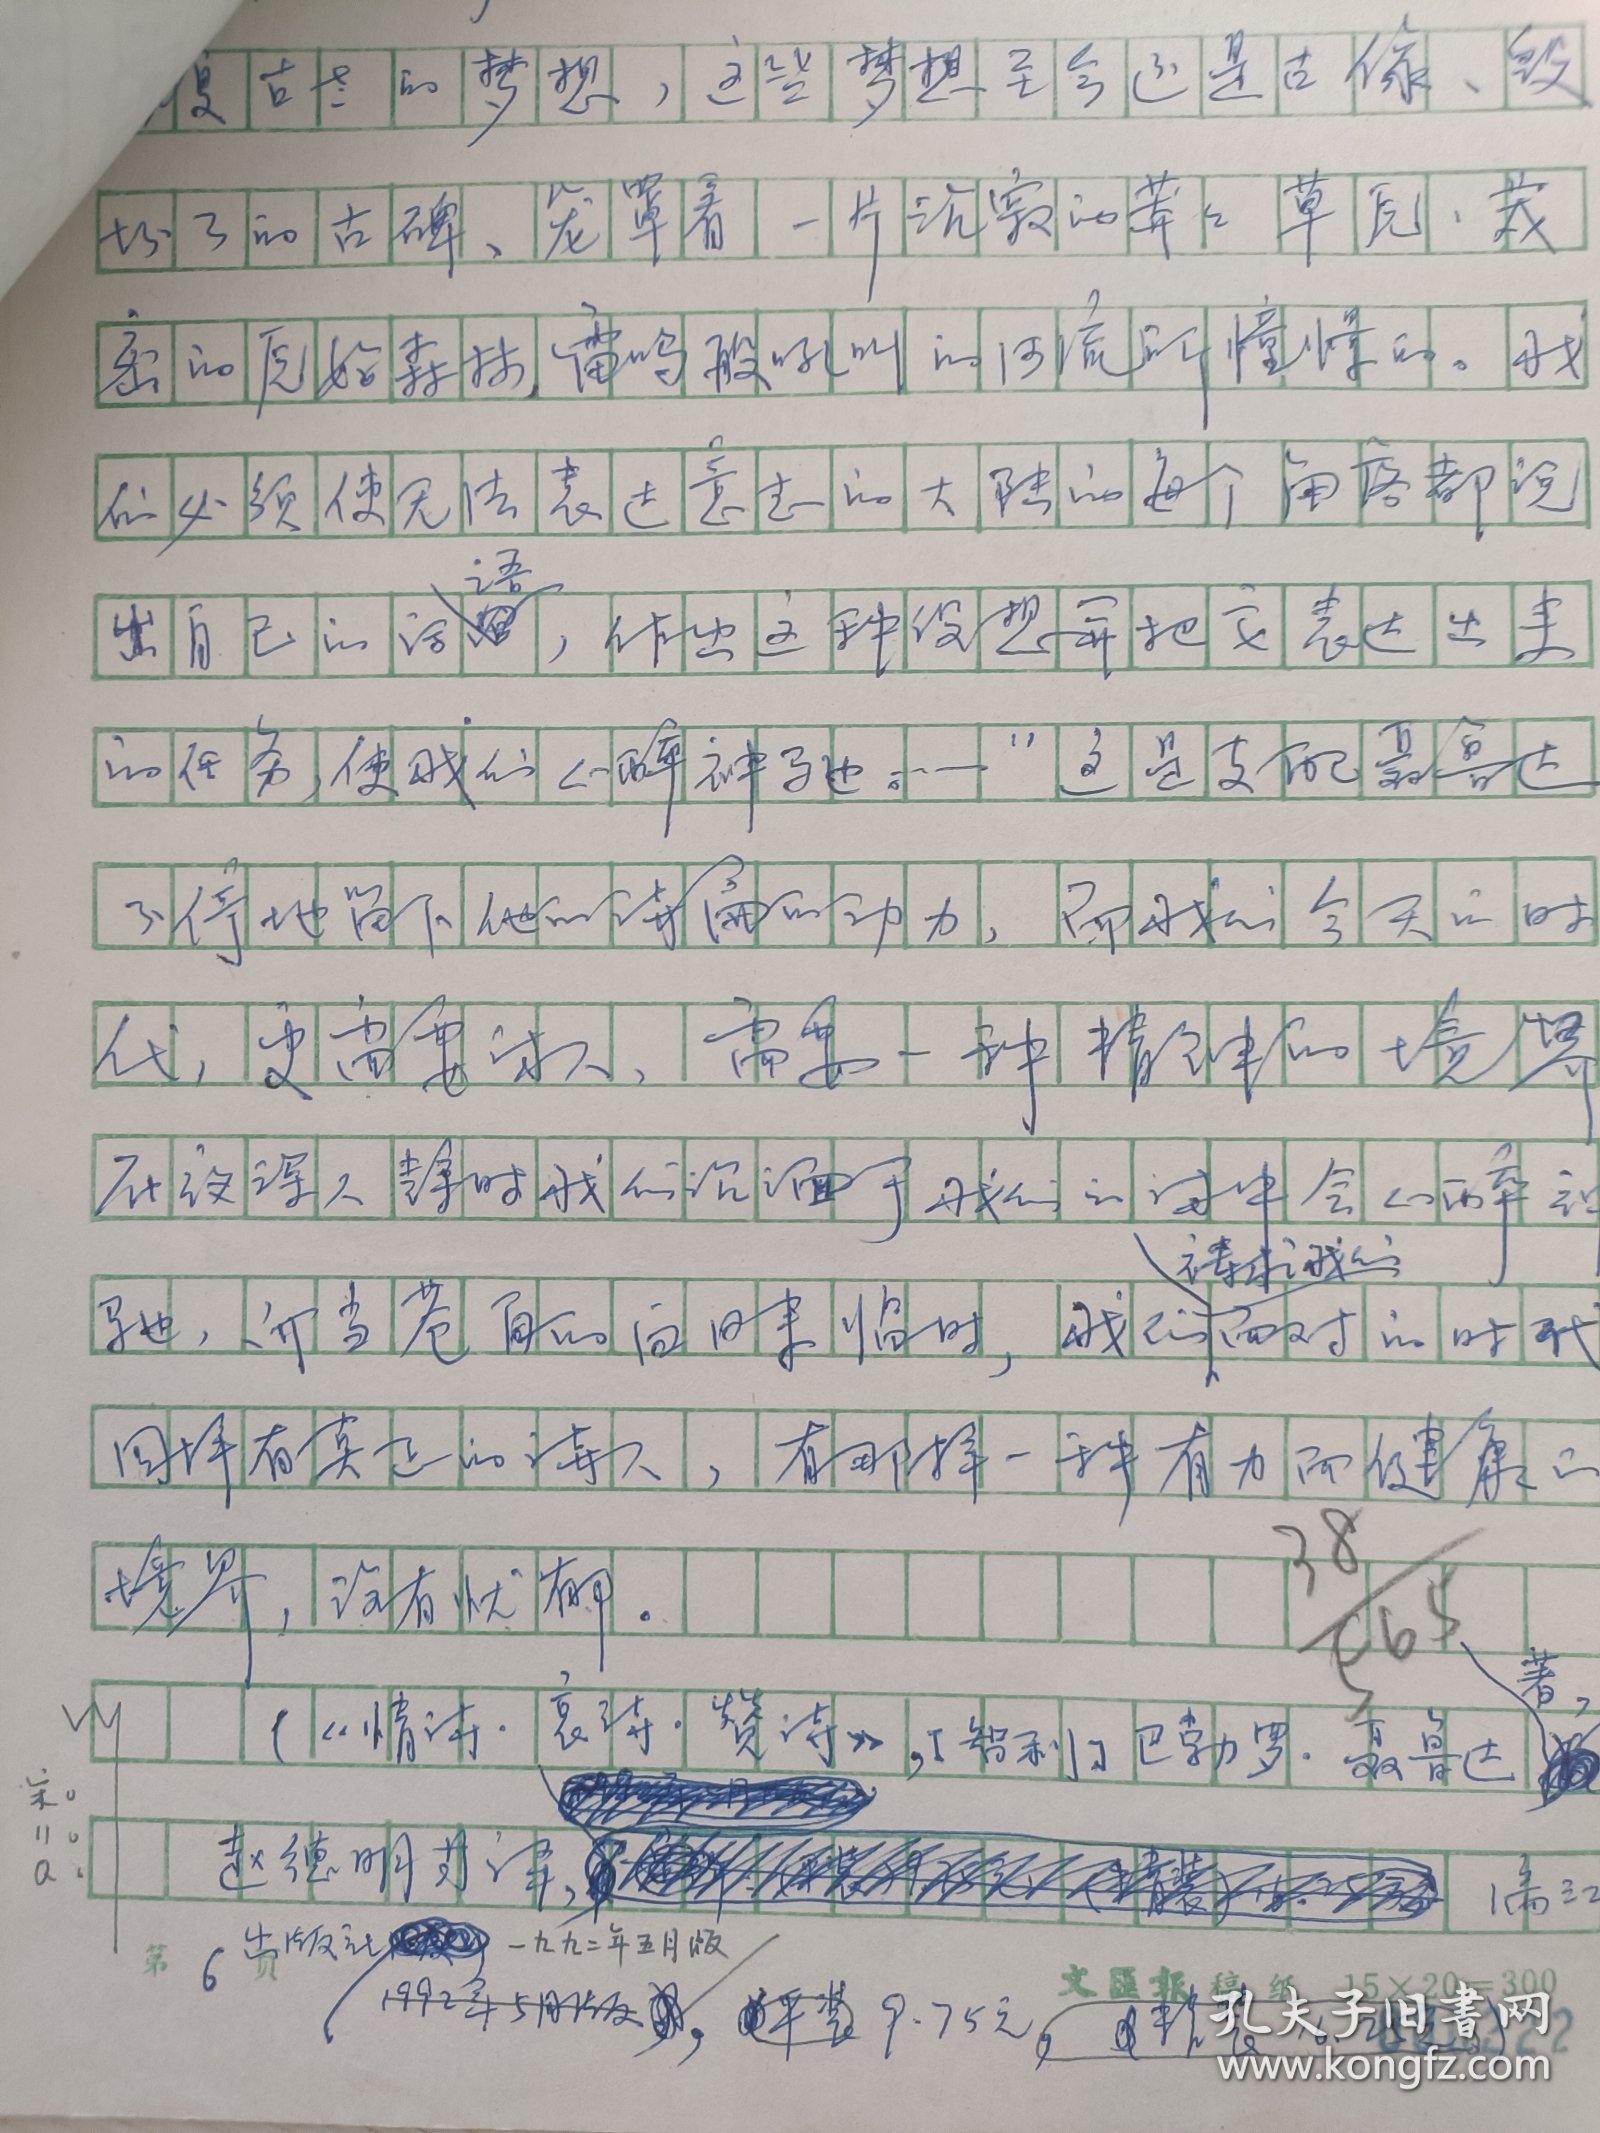 复古老的梦想，这些梦想至今还是古像、毁
坏了的古碑、笼罩着一片沉寂的莽莽草原、茂
密的原始森林，雷鸣般吼叫的河流所憧憬的。我
们必须使无法表达意志的大陆的每个角落都说
语
出自己的话，作出这种设想并把它表达出来
的任务，使我们心醉神驰。……”这是支配聂鲁达
不停地留下他的诗篇的动力，而我们今天的时
代，更需要诗人、需要一种精神的境界
在夜深人静时我们沉湎于我们的诗中会心醉神
祷求我们
驰，所当苍白的白日来临时，我们面对的时代
同样有真正的诗人，有那样一种有力而健康的
境界，没有忧郁。
38
565
著，
（《情诗·哀诗·赞诗》，〔智利〕巴勃罗·聂鲁达
赵德明等译，漓江
宋。
第6页
出版社 一九九二年五月版
1992年5月版，平装 9.75元，
文匯報稿纸 15×20=300
孔夫子旧書网
www.kongfz.com